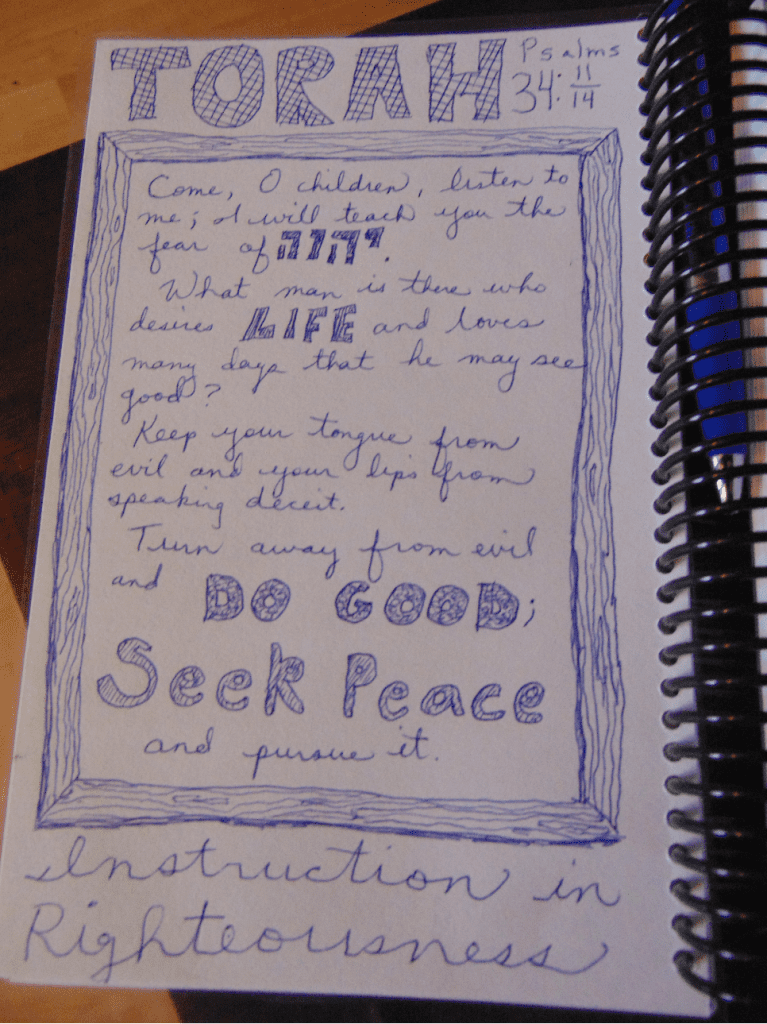 TORAH
Psalms
34:11/14
Come, O children, listen to
me; I will teach you the
fear of יהוה.
What man is there who
desires LIFE and loves
many days that he may see
good?
Keep your tongue from
evil and your lips from
speaking deceit.
Turn away from evil
and DO GOOD;
Seek Peace
and pursue it.
Instruction in
Righteousness